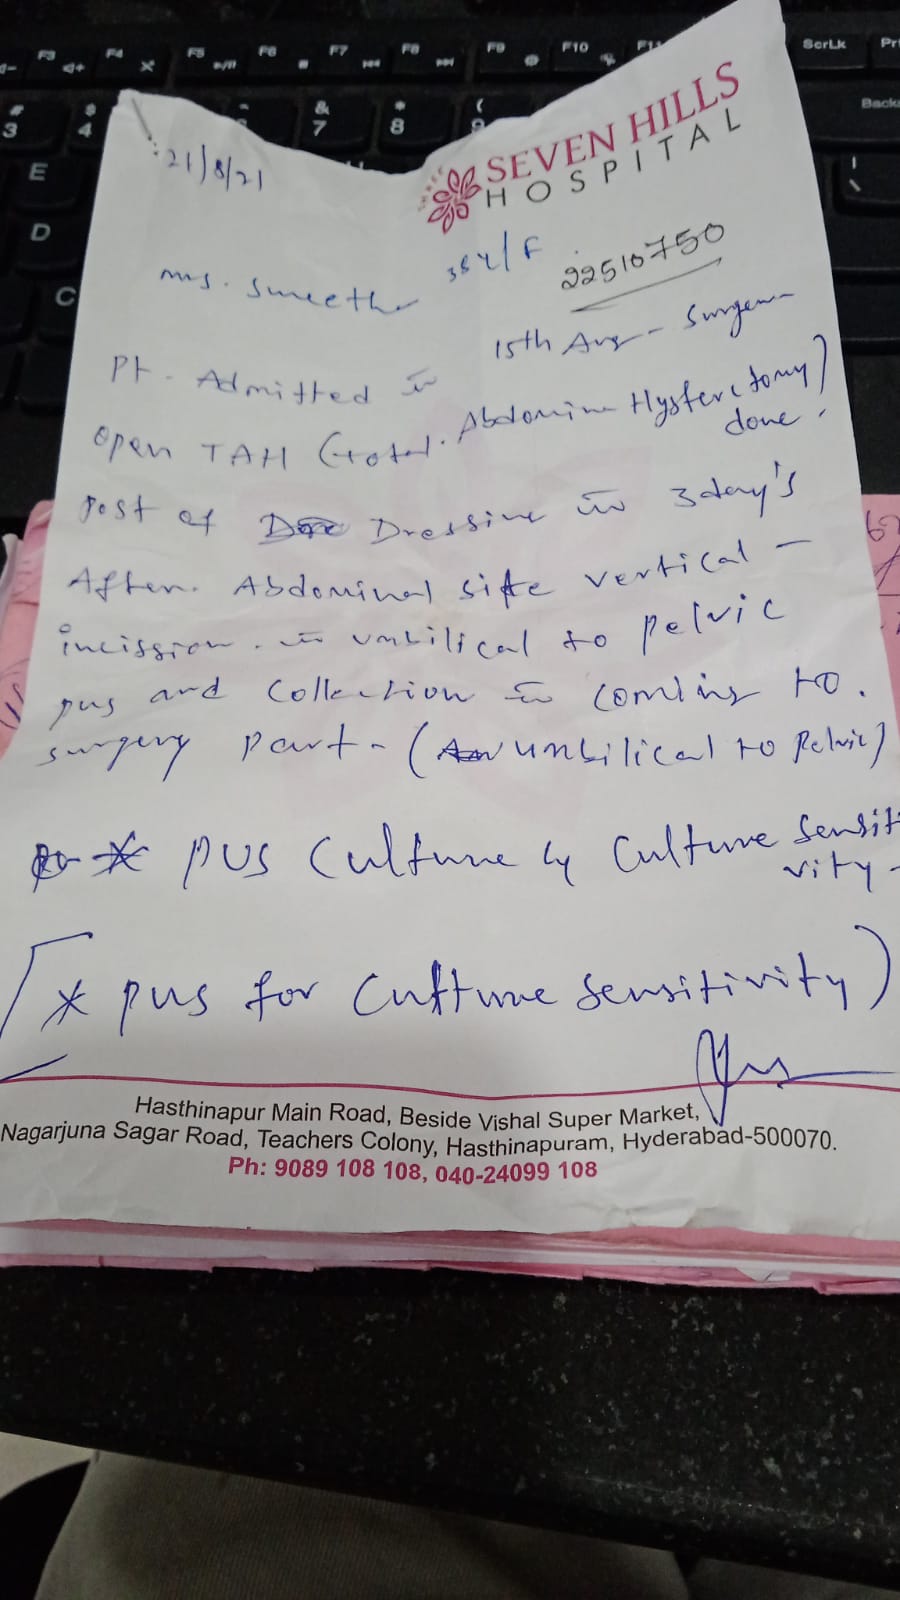 SHREE
SEVEN HILLS
HOSPITAL
21/8/21
Mrs. Sweetha 38Y/F
22510750
Pt. Admitted in 15th Aug - Surgen
Open TAH (total. Abdomine Hysterectomy)
done.
Post of Dressing in 3day's
After. Abdominal site vertical -
incission. in umbilical to pelvic
pus and collection in coming to.
surgery part - (umbilical to Pelvic)
* pus culture by culture sensiti
vity -
[* pus for culture sensitivity)
Hasthinapur Main Road, Beside Vishal Super Market,
Nagarjuna Sagar Road, Teachers Colony, Hasthinapuram, Hyderabad-500070.
Ph: 9089 108 108, 040-24099 108
F3
F4
F5
F6
F7
F8
F9
F10
F11
ScrLk
Back
#
3
$
4
&
7
*
8
(
9
E
D
C